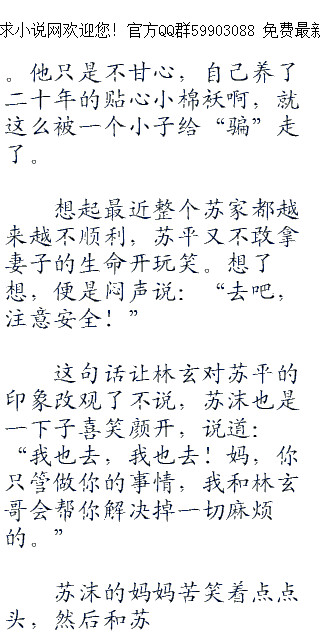 求小说网欢迎您！官方QQ群59903088 免费最新
。他只是不甘心，自己养了
二十年的贴心小棉袄啊，就
这么被一个小子给“骗”走
了。
想起最近整个苏家都越
来越不顺利，苏平又不敢拿
妻子的生命开玩笑。想了
想，便是闷声说：“去吧，
注意安全！”
这句话让林玄对苏平的
印象改观了不说，苏沫也是
一下子喜笑颜开，说道：
“我也去，我也去！妈，你
只管做你的事情，我和林玄
哥会帮你解决掉一切麻烦
的。”
苏沫的妈妈苦笑着点点
头，然后和苏